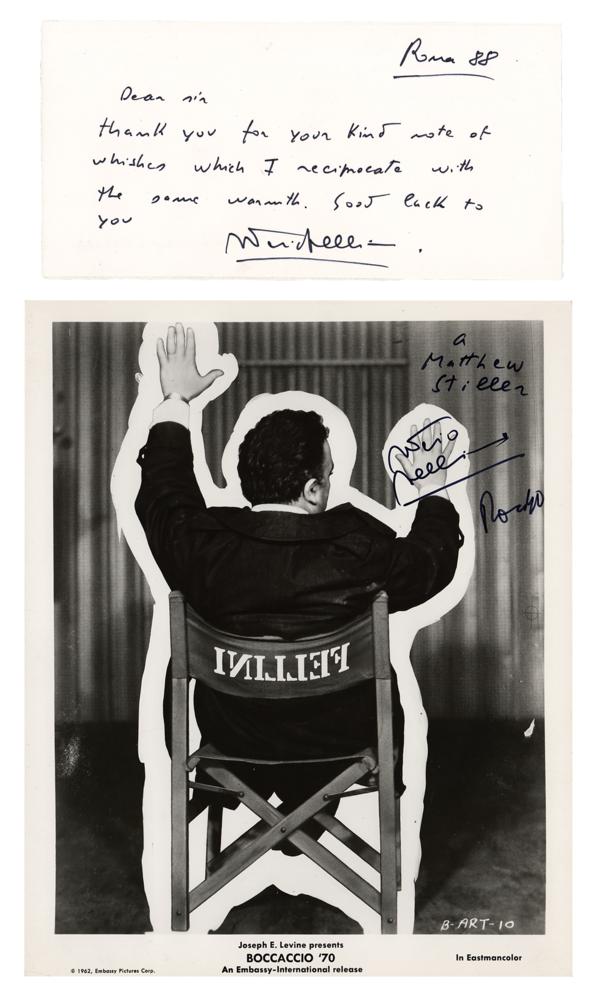 Roma 88
Dear sir
thank you for your kind note of
whishes which I reciprocate with
the same warmth. Good luck to
you
a
Matthew
Stiller
FELLINI
B-ART-10
Joseph E. Levine presents
BOCCACCIO '70
In Eastmancolor
© 1962, Embassy Pictures Corp.
An Embassy-International release